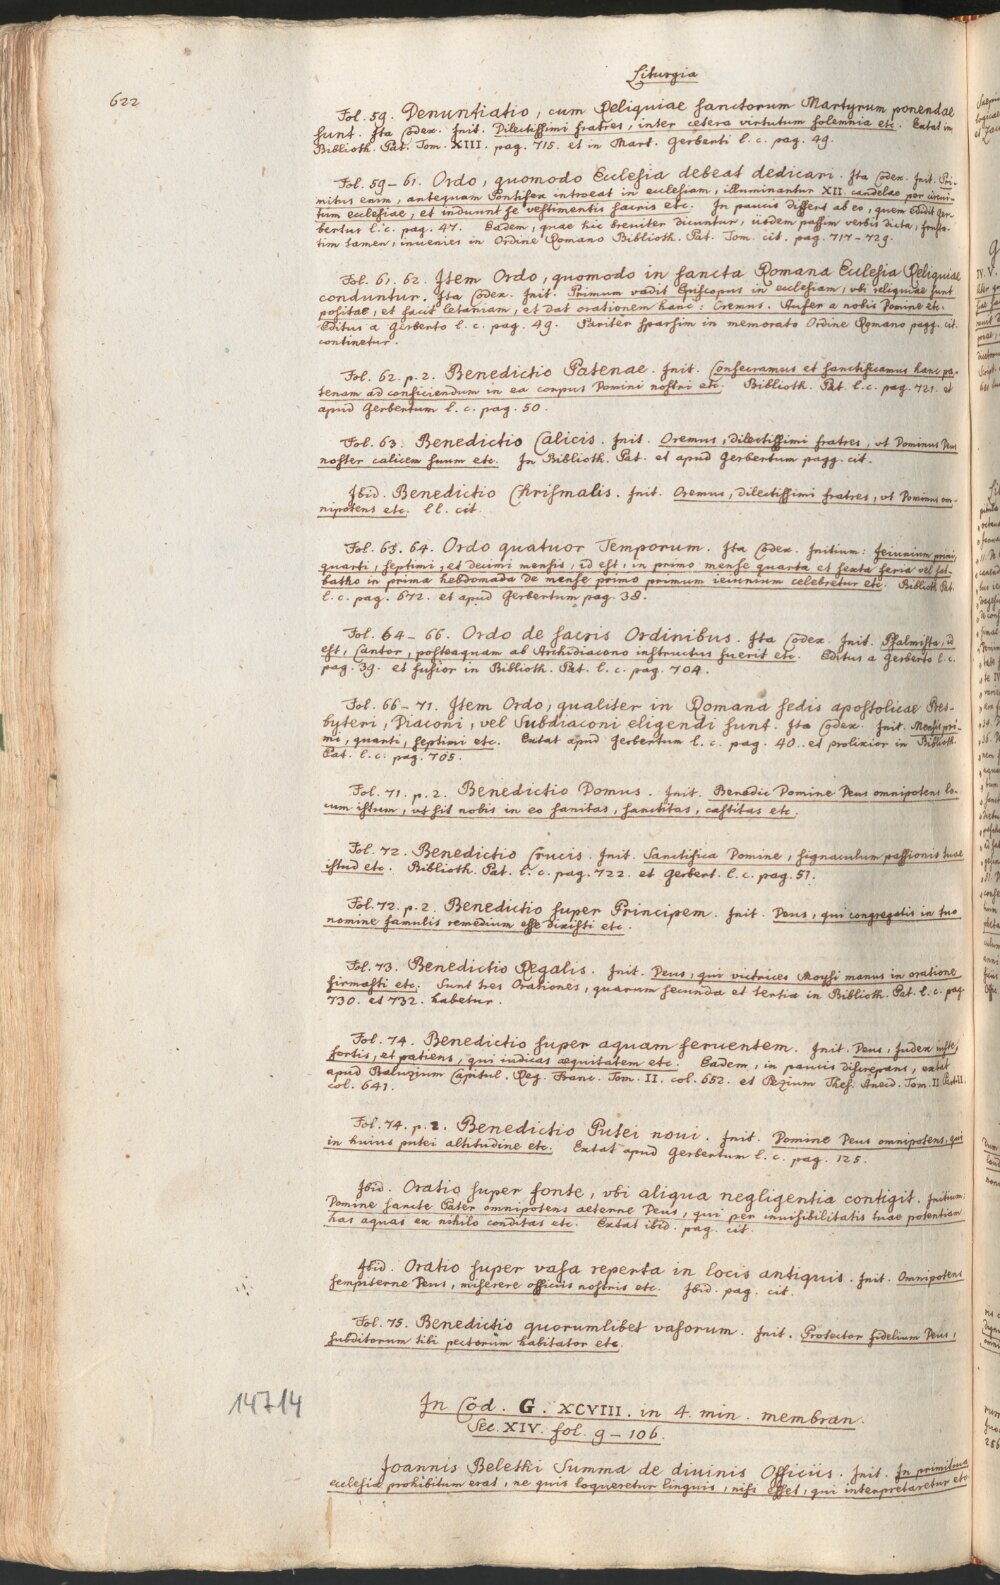 Liturgia
622
Fol. 59. Denuntiatio, cum Reliquiae sanctorum Martyrum ponendae
sunt. Ita Codex. Init. Dilectissimi fratres, inter cetera virtutum solemnia etc. Extat in
Biblioth. Pat. Tom. XIII. pag. 715. et in Mart. Gerberti l. c. pag. 49.
Fol. 59-61. Ordo, quomodo Ecclesia debeat dedicari. Ita Codex. Init. Pri-
mitus enim, antequam Pontifex introeat in ecclesiam, illuminantur XII. candelae per circui-
tum ecclesiae, et induunt se vestimentis sacris etc. In paucis differt ab eo, quem edidit Ger-
bertus l. c. pag. 47. Eadem, quae hic breuiter dicuntur, iisdem passim verbis dicta,
tim tamen, inuenies in Ordine Romano Biblioth. Pat. Tom. cit. pag. 717-729.
Fol. 61. 62. Item Ordo, quomodo in sancta Romana Ecclesia Reliquiae
conduntur. Ita Codex. Init. Primum vadit Episcopus in ecclesiam, vbi reliquiae sunt
positae, et facit letaniam, et dat orationem hanc: Oremus. Aufer a nobis Domine etc.
Editus a Gerberto l. c. pag. 49. Pariter sparsim in memorato Ordine Romano pagg. cit.
continetur.
Fol. 62. p. 2. Benedictio Patenae. Init. Consecramus et sanctificamus hanc pa-
tenam ad conficiendum in ea corpus Domini nostri etc. Biblioth. Pat. l. c. pag. 721. et
apud Gerbertum l. c. pag. 50.
Fol. 63. Benedictio Calicis. Init. Oremus, dilectissimi fratres, vt Dominus Deus
noster calicem suum etc. In Biblioth. Pat. et apud Gerbertum pagg. cit.
Ibid. Benedictio Chrismalis. Init. Oremus, dilectissimi fratres, vt Dominus om-
nipotens etc. ll. cit.
Fol. 63. 64. Ordo quatuor Temporum. Ita Codex. Initium: Ieiunium primi,
quarti, septimi, et decimi mensis, id est, in primo mense quarta et sexta feria vel sab-
batho in prima hebdomada de mense primo primum ieiunium celebretur etc. Biblioth. Pat.
l. c. pag. 672. et apud Gerbertum pag. 38.
Fol. 64-66. Ordo de sacris Ordinibus. Ita Codex. Init. Psalmista, id
est, Cantor, posteaquam ab Archidiacono instructus fuerit etc. Editus a Gerberto l. c.
pag. 39. et fusior in Biblioth. Pat. l. c. pag. 704.
Fol. 66-71. Item Ordo, qualiter in Romana sedis apostolicae Pres-
byteri, Diaconi, vel Subdiaconi eligendi sunt. Ita Codex. Init. Mensis pri-
mi, quarti, septimi etc. Extat apud Gerbertum l. c. pag. 40. et prolixior in Biblioth.
Pat. l. c. pag. 705.
Fol. 71. p. 2. Benedictio Domus. Init. Benedic Domine Deus omnipotens lo-
cum istum, vt sit nobis in eo sanitas, sanctitas, castitas etc.
Fol. 72. Benedictio Crucis. Init. Sanctifica Domine, signaculum passionis tuae
istud etc. Biblioth. Pat. l. c. pag. 722. et Gerbert. l. c. pag. 51.
Fol. 72. p. 2. Benedictio super Principem. Init. Deus, qui congregatis in tuo
nomine famulis remedium esse dixisti etc.
Fol. 73. Benedictio Regalis. Init. Deus, qui victrices Moysi manus in oratione
firmasti etc. Sunt tres Orationes, quarum secunda et tertia in Biblioth. Pat. l. c. pag.
730. et 732. habetur.
Fol. 74. Benedictio super aquam feruentem. Init. Deus, Iudex iuste,
fortis, et patiens, qui iudicas aequitatem etc. Eadem, in paucis discrepans, extat
apud Baluzium Capitul. Reg. Franc. Tom. II. col. 652. et Pezium Thes. Anecd. Tom. II. Part. II.
col. 641.
Fol. 74. p. 2. Benedictio Putei noui. Init. Domine Deus omnipotens, qui
in huius putei altitudine etc. Extat apud Gerbertum l. c. pag. 125.
Ibid. Oratio super fonte, vbi aliqua negligentia contigit. Initium:
Domine sancte Pater omnipotens aeterne Deus, qui per inuisibilitatis tuae potentiam
has aquas ex nihilo conditas etc. Extat ibid. pag. cit.
Ibid. Oratio super vasa reperta in locis antiquis. Init. Omnipotens
sempiterne Deus, miserere officiis nostris etc. Ibid. pag. cit.
Fol. 75. Benedictio quorumlibet vasorum. Init. Protector fidelium Deus,
subditorum tibi pectorum habitator etc.
14714
In Cod. G. XCVIII. in 4. min. membran.
Sec. XIV. fol. 9-106.
Joannis Belethi Summa de diuinis Officiis. Init. In primitiua
ecclesia prohibitum erat, ne quis loqueretur linguis, nisi esset, qui interpretaretur etc.